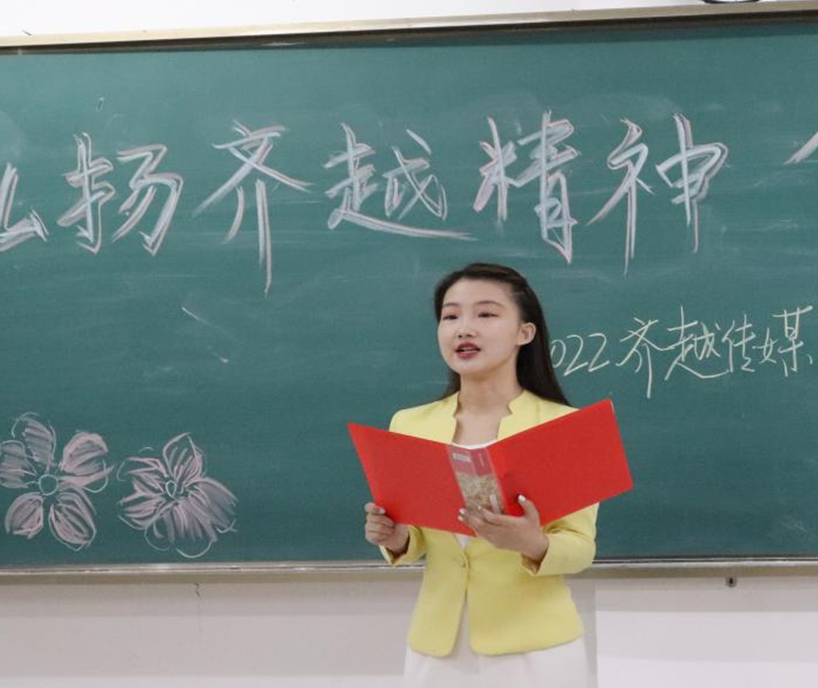 弘扬齐越精神
2022齐越传媒